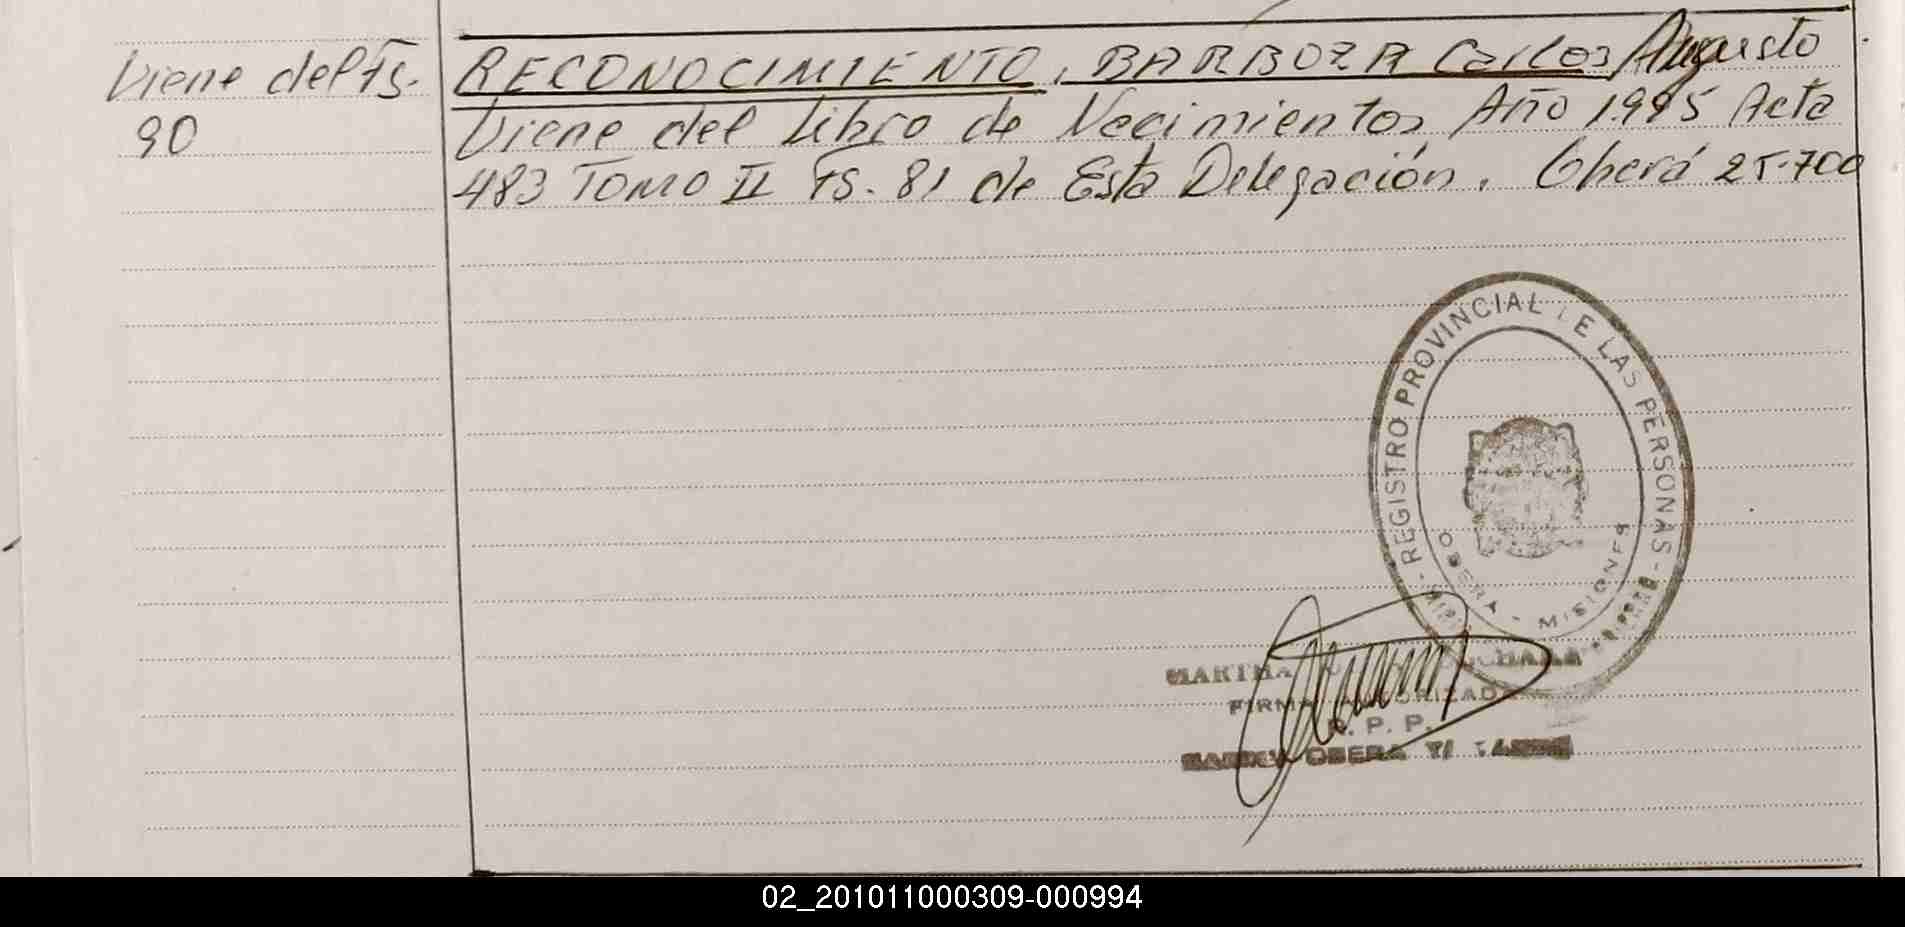 Viene del Fs.
90
RECONOCIMIENTO. BARBOZA Carlos Augusto
Viene del Libro de Nacimientos Año 1995 Acta
483 Tomo II Fs. 81 de Esta Delegación. Oberá 25-700
REGISTRO PROVINCIAL DE LAS PERSONAS
OBERA - MISIONES
MARTHA
FIRMA AUTORIZADA
R. P. P.
OBERA
02_201011000309-000994